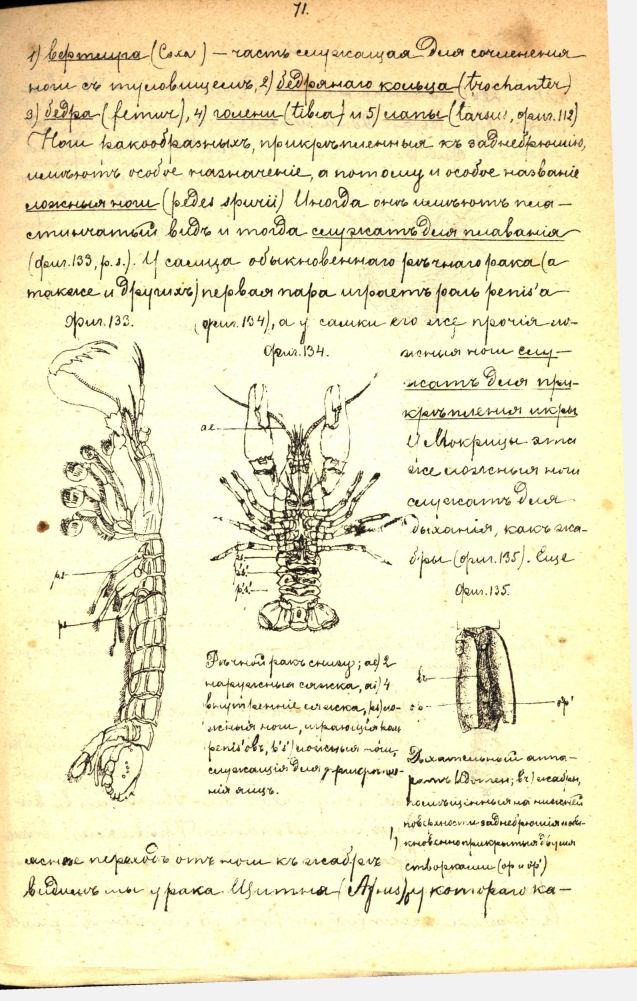 71.
1) вертлуга (Coxa) — часть служащая для сочленения
ноги съ туловищемъ, 2) бедрянаго кольца (trochanter)
3) бедра (femur), 4) голени (tibia) и 5) лапы (tarsus, фиг. 112)
Ноги ракообразныхъ, прикрѣпленныя къ заднебрюшію,
имѣютъ особое назначеніе, а потому и особое названіе
ложныя ноги (pedes spurii) Иногда онѣ имѣютъ пла-
стинчатый видъ и тогда служатъ для плаванія
(фиг. 133, p. s.). У самца обыкновеннаго рѣчнаго рака (а
также и другихъ) первая пара играетъ роль penis'a
(фиг. 134), а у самки его же прочія ло-
жныя ноги слу-
жатъ для при-
крѣпленія икры
У Мокрицы эти
же ложныя ноги
служатъ для
дыханія, какъ жа-
бры (фиг. 135). Еще
Фиг. 133.
ps
Фиг. 134.
ae
p's'
Рѣчной ракъ снизу; ae) 2
наружныя сяжка, ai) 4
внутреннія сяжка, ps) ло-
жныя ноги, играющія роль
penis'овъ, p's') ложныя ноги,
служащія для прикрѣпле-
нія яицъ.
Фиг. 135.
br
op
op'
Дыхательный аппа-
ратъ Идотеи; br) жабры,
помѣщенныя на нижней
поверхности заднебрюшія обы-
кновенно прикрытыя двумя
створками (op и op')
ясное переходъ отъ ноги къ жабрѣ
видимъ мы у рака Щитня (Apus), у котораго ка-